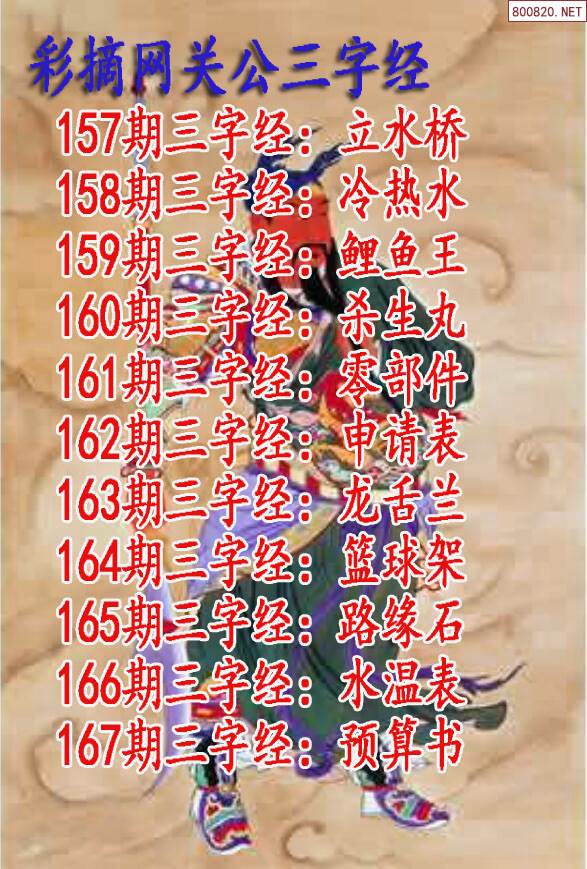 800820.NET
彩摘网关公三字经
157期三字经：立水桥
158期三字经：冷热水
159期三字经：鲤鱼王
160期三字经：杀生丸
161期三字经：零部件
162期三字经：申请表
163期三字经：龙舌兰
164期三字经：篮球架
165期三字经：路缘石
166期三字经：水温表
167期三字经：预算书